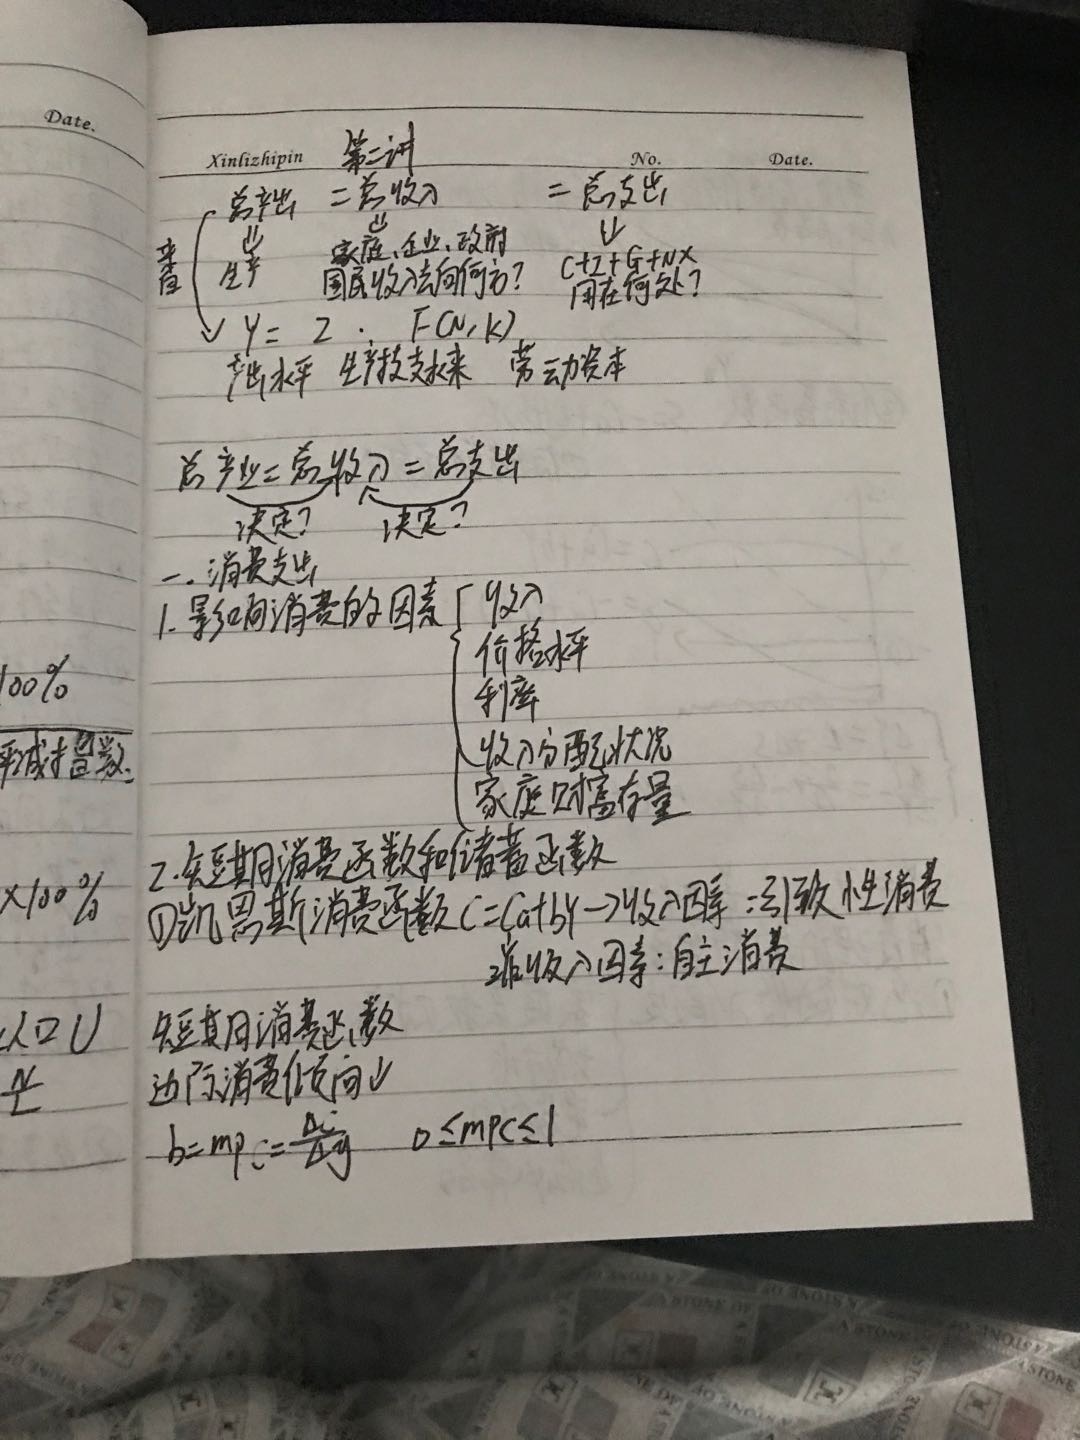 Date.
100%
平减指数.
×100%
人口 U
Xinlizhipin 第二讲 No. Date.
总产出 = 总收入 = 总支出
⇓ ⇓ ↓
来看 生产 家庭、企业、政府 C+I+G+NX
国民收入去向何方? 用在何处?
Y = Z · F(N,K)
产出水平 生产技支水来 劳动资本
总产业=总收入=总支出
决定? 决定?
一. 消费支出
1. 影响消费的因素 收入
价格水平
利率
收入分配状况
家庭财富存量
2. 短期消费函数和储蓄函数
①凯恩斯消费函数C=Ca+bY→收入因素:引致性消费
非收入因素:自主消费
短期消费函数
边际消费倾向↓
b=mpc=Δc/Δy 0≤mpc≤1
A STONE DE
A STONE